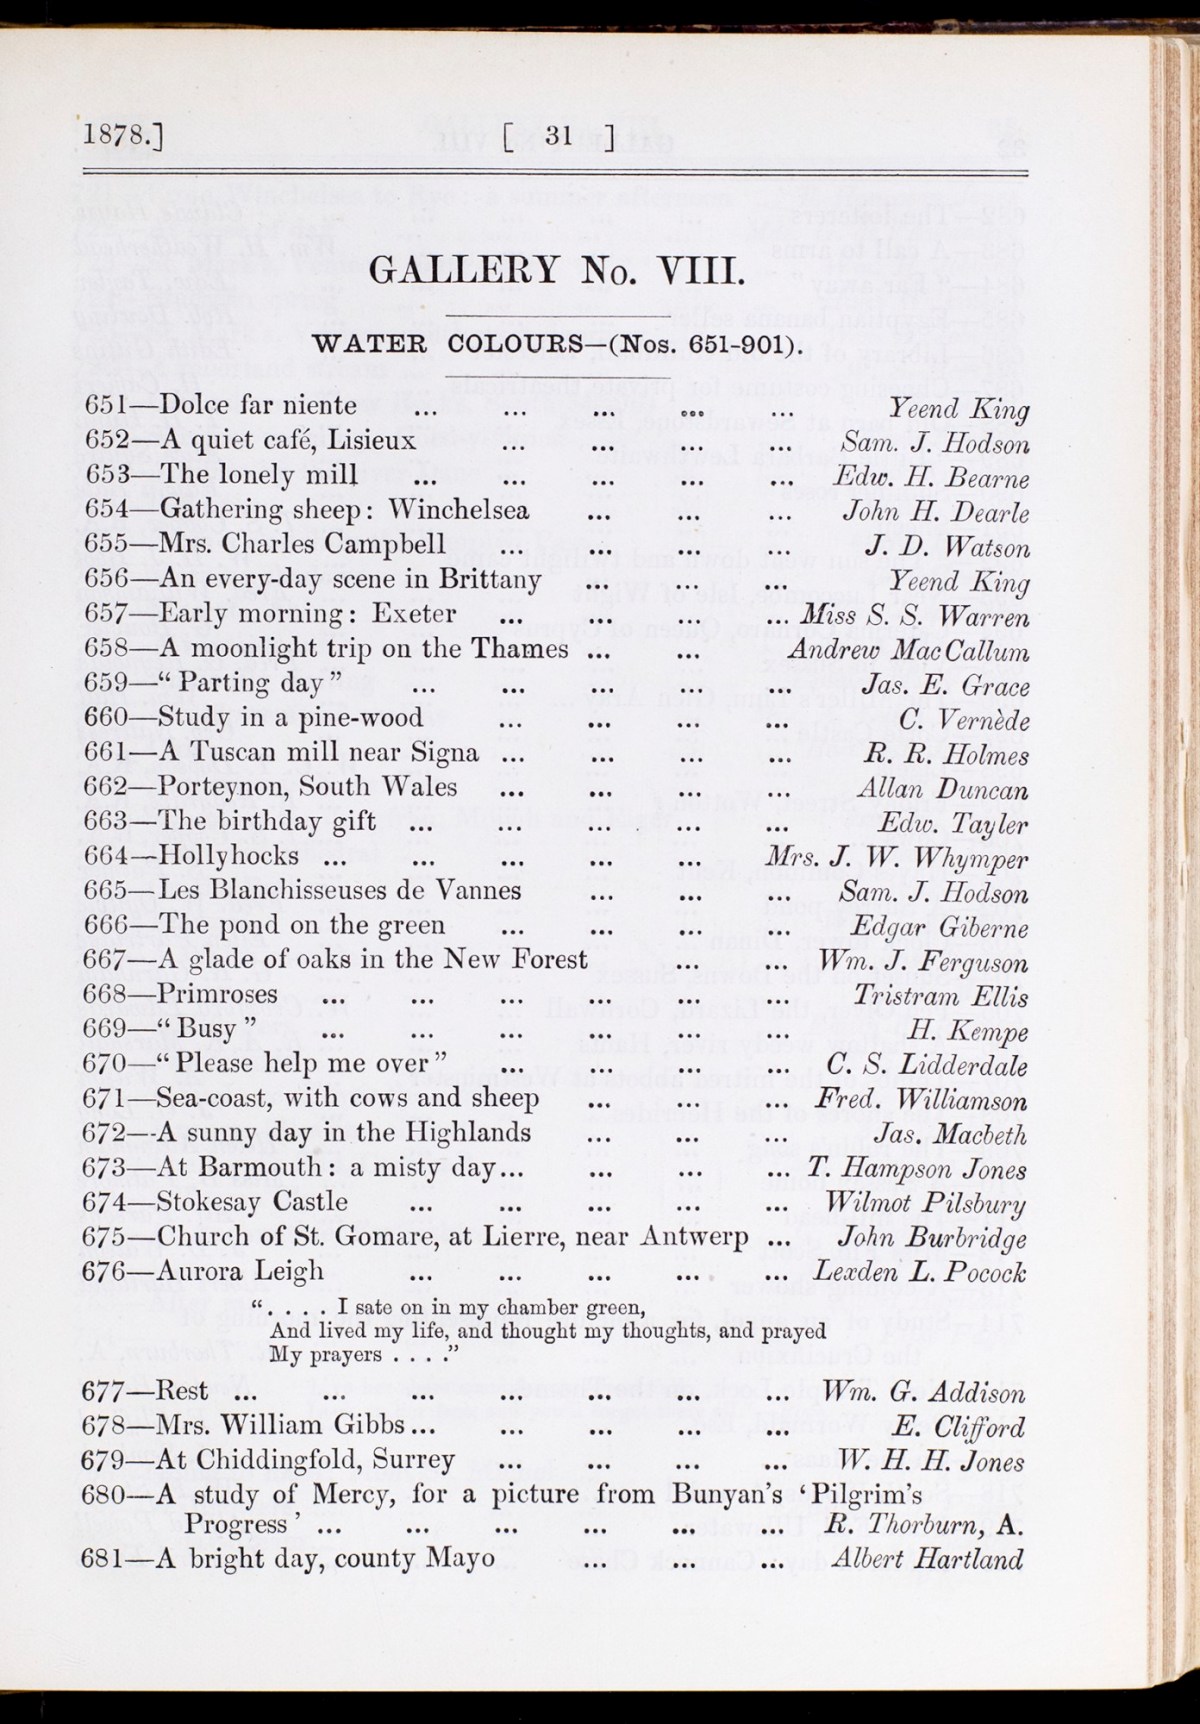 1878.] [ 31 ]
GALLERY No. VIII.
WATER COLOURS—(Nos. 651-901).
651—Dolce far niente ... ... ... ... ... Yeend King
652—A quiet café, Lisieux ... ... ... ... Sam. J. Hodson
653—The lonely mill ... ... ... ... ... Edw. H. Bearne
654—Gathering sheep: Winchelsea ... ... ... John H. Dearle
655—Mrs. Charles Campbell ... ... ... ... J. D. Watson
656—An every-day scene in Brittany ... ... ... Yeend King
657—Early morning: Exeter ... ... ... ... Miss S. S. Warren
658—A moonlight trip on the Thames ... ... Andrew MacCallum
659—“Parting day” ... ... ... ... ... Jas. E. Grace
660—Study in a pine-wood ... ... ... ... C. Vernède
661—A Tuscan mill near Signa ... ... ... ... R. R. Holmes
662—Porteynon, South Wales ... ... ... ... Allan Duncan
663—The birthday gift ... ... ... ... ... Edw. Tayler
664—Hollyhocks ... ... ... ... ... Mrs. J. W. Whymper
665—Les Blanchisseuses de Vannes ... ... ... Sam. J. Hodson
666—The pond on the green ... ... ... ... Edgar Giberne
667—A glade of oaks in the New Forest ... ... Wm. J. Ferguson
668—Primroses ... ... ... ... ... ... Tristram Ellis
669—“Busy” ... ... ... ... ... ... H. Kempe
670—“Please help me over” ... ... ... ... C. S. Lidderdale
671—Sea-coast, with cows and sheep ... ... ... Fred. Williamson
672—A sunny day in the Highlands ... ... ... Jas. Macbeth
673—At Barmouth: a misty day... ... ... ... T. Hampson Jones
674—Stokesay Castle ... ... ... ... ... Wilmot Pilsbury
675—Church of St. Gomare, at Lierre, near Antwerp ... John Burbridge
676—Aurora Leigh ... ... ... ... ... Lexden L. Pocock
“. . . . I sate on in my chamber green,
And lived my life, and thought my thoughts, and prayed
My prayers . . . .”
677—Rest ... ... ... ... ... ... ... Wm. G. Addison
678—Mrs. William Gibbs... ... ... ... ... E. Clifford
679—At Chiddingfold, Surrey ... ... ... ... W. H. H. Jones
680—A study of Mercy, for a picture from Bunyan’s ‘Pilgrim’s
Progress’ ... ... ... ... ... ... R. Thorburn, A.
681—A bright day, county Mayo ... ... ... Albert Hartland